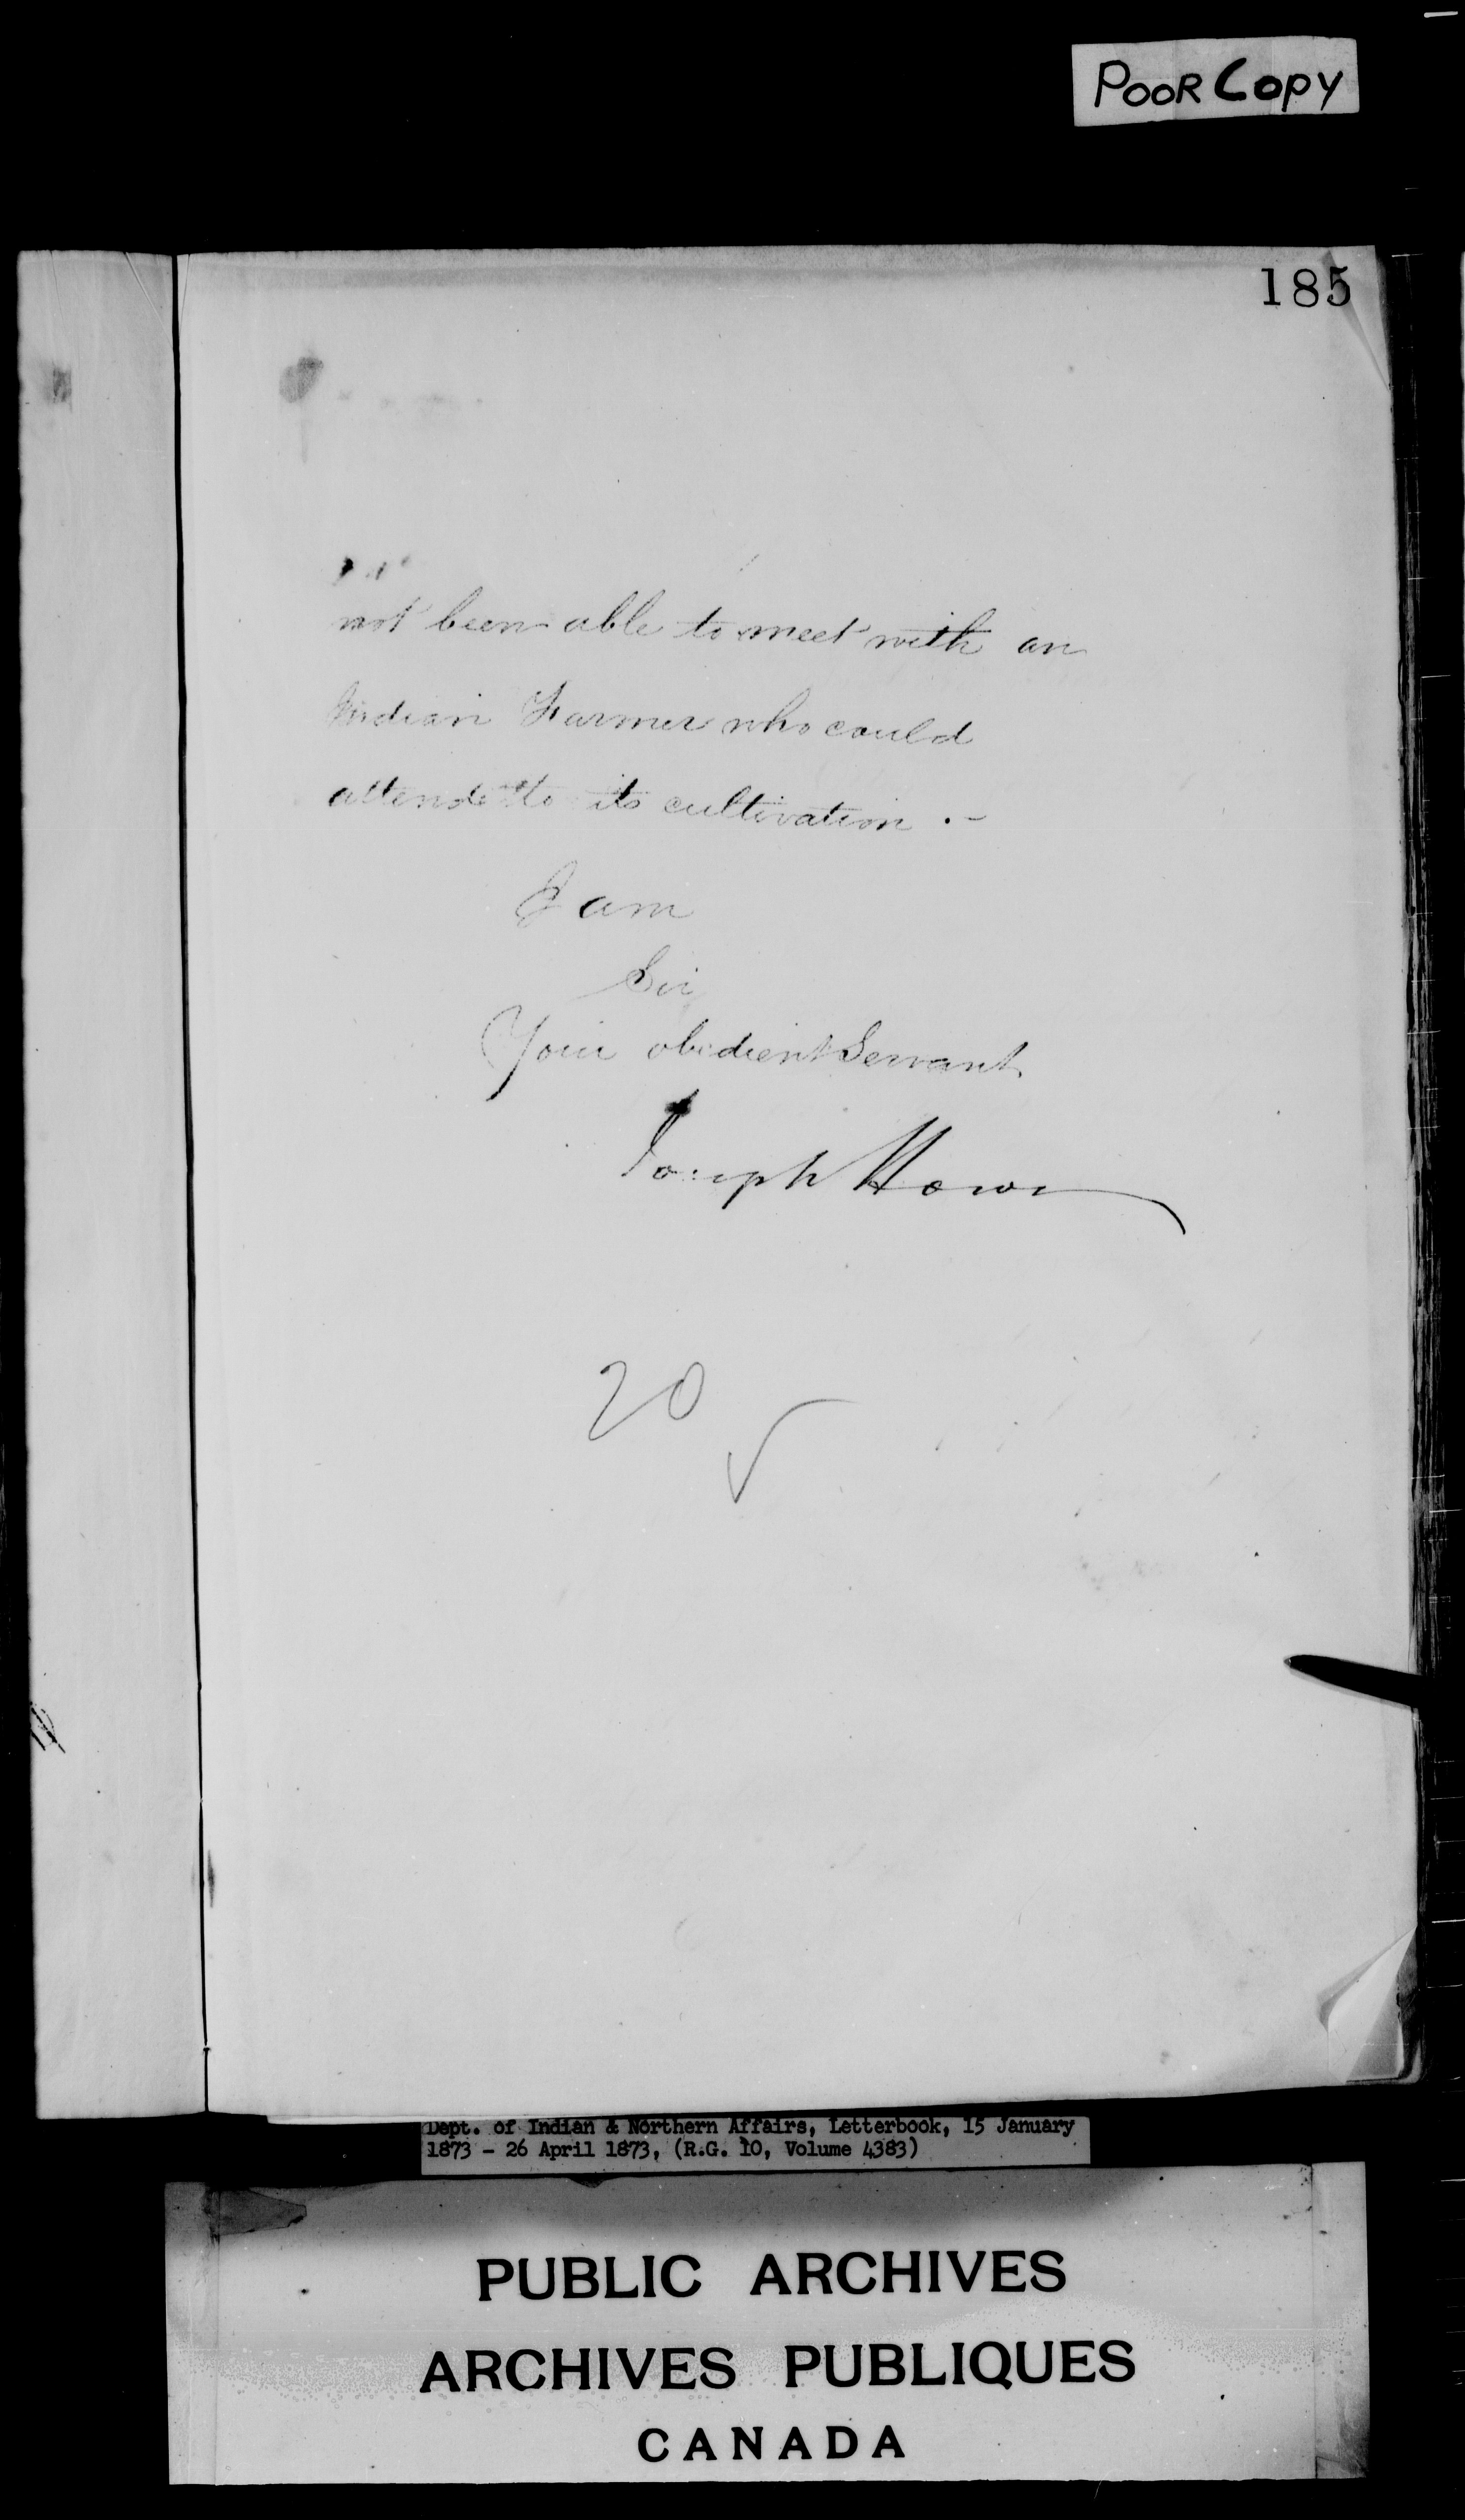 POOR COPY
185
not been able to meet with an
Indian Farmer who could
attend to its cultivation . -
I am
Sir
Your obedient Servant
Joseph Howe
20
Dept. of Indian & Northern Affairs, Letterbook, 15 January
1873 - 26 April 1873, (R.G. 10, Volume 4383)
PUBLIC ARCHIVES
ARCHIVES PUBLIQUES
CANADA